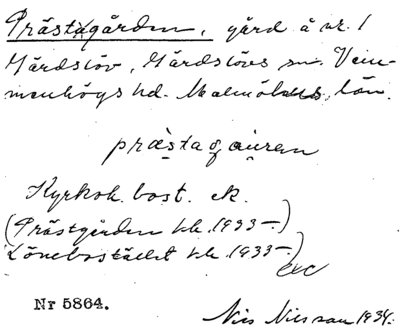 Prästagården, gård å nr. 1
Gärdslöv, Gärdslövs sn. Vem-
menhögs hd. Malmöhus län.
præstagauren
Kyrkoh. bost. ek.
(Prästgården kk. 1933-)
(Lönebostället kk. 1933-)
exc
Nr 5864.
Nils Nilsson 1934.